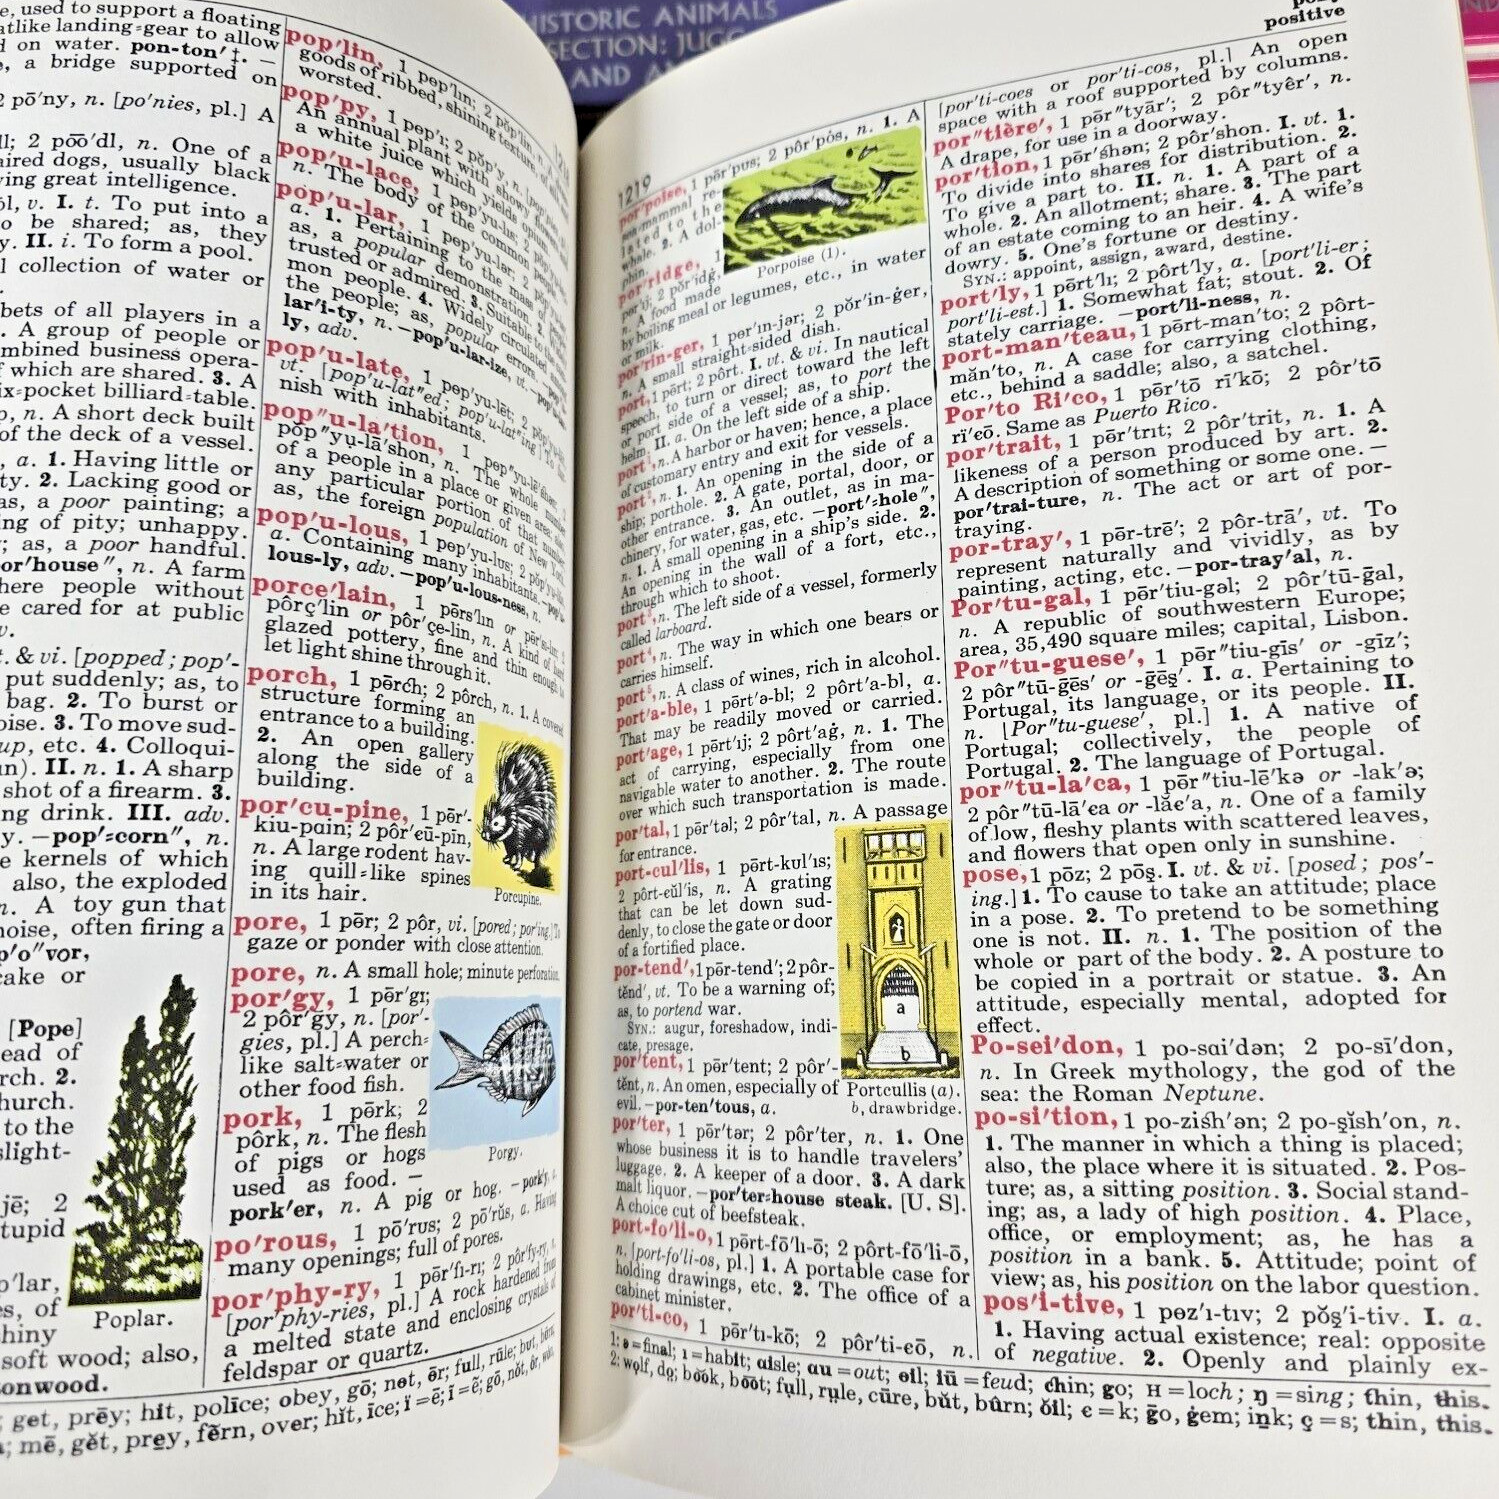 ISTORIC ANIMALS
SECTION: JUGG
AND A
e, used to support a floating
atlike landing-gear to allow
d on water. pon-ton′‡. —
e, a bridge supported on
2 pō′ny, n. [po′nies, pl.] A
ll; 2 pōō′dl, n. One of a
aired dogs, usually black
ving great intelligence.
ōl, v. I. t. To put into a
o be shared; as, they
y. II. i. To form a pool.
l collection of water or
bets of all players in a
. A group of people or
mbined business opera-
f which are shared. 3. A
ix-pocket billiard-table.
p, n. A short deck built
of the deck of a vessel.
, a. 1. Having little or
ty. 2. Lacking good or
as, a poor painting; a
ing of pity; unhappy.
; as, a poor handful.
or′house″, n. A farm
here people without
e cared for at public
v.
t. & vi. [popped; pop′-
put suddenly; as, to
bag. 2. To burst or
oise. 3. To move sud-
up, etc. 4. Colloqui-
un). II. n. 1. A sharp
shot of a firearm. 3.
ng drink. III. adv.
y. —pop′-corn″, n.
e kernels of which
also, the exploded
n. A toy gun that
noise, often firing a
p′o″vor,
cake or
[Pope]
ead of
rch. 2.
hurch.
to the
slight-
jē; 2
tupid
p′lar,
es, of
hiny
soft wood; also,
onwood.
Poplar.
pop′lin, 1 pep′lın; 2 pŏp′lin, n. A
goods of ribbed, shining texture, of
worsted.
pop′py, 1 pep′ı; 2 pŏp′y, n.
An annual plant with showy
a white juice which yields opium
pop′u-lace, 1 pep′yu-lıs; 2
n. The body of the common people
pop′u-lar, 1 pep′yu-lər; 2
a. 1. Pertaining to the mass of
as, a popular demonstration. 2.
trusted or admired. 3. Suitable to the
mon people. 4. Widely circulated
the people; as, popular errors.
lar′i-ty, n. —pop′u-lar-ize, vt.
ly, adv.
pop′u-late, 1 pep′yu-lēt; 2
vt. [pop′u-lat″ed; pop′u-lat″ing]
nish with inhabitants.
pop″u-la′tion, 1 pep″yu-lē′shən; 2
pŏp″yụ-lā′shon, n. The whole number
of a people in a place or given area;
any particular portion of that number
as, the foreign population of New York.
pop′u-lous, 1 pep′yu-lus; 2
a. Containing many inhabitants. —pop′u-
lous-ly, adv. —pop′u-lous-ness, n.
porce′lain, 1 pōrs′lın or
pôrç′lin or pôr′çe-lin, n. A kind of hard
glazed pottery, fine and thin enough to
let light shine through it.
porch, 1 pōrch; 2 pôrch, n. 1. A covered
structure forming an
entrance to a building.
2. An open gallery
along the side of a
building.
por′cu-pine, 1 pōr′-
kiu-pain; 2 pôr′cū-pīn,
n. A large rodent hav-
ing quill-like spines
in its hair.
Porcupine.
pore, 1 pōr; 2 pôr, vi. [pored; por′ing.] To
gaze or ponder with close attention.
pore, n. A small hole; minute perforation.
por′gy, 1 pōr′gı;
2 pôr′gy, n. [por′-
gies, pl.] A perch-
like salt-water or
other food fish.
Porgy.
pork, 1 pōrk; 2
pôrk, n. The flesh
of pigs or hogs
used as food. —
pork′er, n. A pig or hog. —porky, a.
po′rous, 1 pō′rus; 2 pō′rŭs, a. Having
many openings; full of pores.
por′phy-ry, 1 pōr′fı-rı; 2 pôr′fy-ry, n.
[por′phy-ries, pl.] A rock hardened from
a melted state and enclosing crystals of
feldspar or quartz.
; get, prēy; hit, police; obey, gō; net, ôr; full, rūle; but, bûrn;
; mē, gĕt, prẹy, fẽrn, over; hĭt, īce; ï=ē; ĩ=ẽ; gō, nŏt, ôr, wȯn,
1219
pony
positive
por′poise, 1 pōr′pus; 2 pôr′pŏs, n. 1. A
sea-mammal re-
lated to the
whale. 2. A dol-
phin.
Porpoise (1).
por′ridge, 1
n. A food made
by boiling meal or legumes, etc., in water
or milk.
por′rin-ger, 1 per′ın-jər; 2 pŏr′in-ġer,
n. A small straight-sided dish.
port, 1 pōrt; 2 pôrt. I. vt. & vi. In nautical
speech, to turn or direct toward the left
or port side of a vessel; as, to port the
helm. II. a. On the left side of a ship.
port¹, n. A harbor or haven; hence, a place
of customary entry and exit for vessels.
port², n. 1. An opening in the side of a
ship; porthole. 2. A gate, portal, door, or
other entrance. 3. An outlet, as in ma-
chinery, for water, gas, etc. —port′-hole″,
n. 1. A small opening in a ship's side. 2.
An opening in the wall of a fort, etc.,
through which to shoot.
port³, n. The left side of a vessel, formerly
called larboard.
port⁴, n. The way in which one bears or
carries himself.
port⁵, n. A class of wines, rich in alcohol.
port′a-ble, 1 pōrt′ə-bl; 2 pôrt′a-bl, a.
That may be readily moved or carried.
port′age, 1 pōrt′ıj; 2 pôrt′aġ, n. 1. The
act of carrying, especially from one
navigable water to another. 2. The route
over which such transportation is made.
por′tal, 1 pōr′təl; 2 pôr′tal, n. A passage
for entrance.
port-cul′lis, 1 pōrt-kul′ıs;
2 pôrt-cŭl′is, n. A grating
that can be let down sud-
denly, to close the gate or door
of a fortified place.
por-tend′, 1 pōr-tend′; 2 pôr-
tĕnd′, vt. To be a warning of;
as, to portend war.
SYN.: augur, foreshadow, indi-
cate, presage.
por′tent, 1 pōr′tent; 2 pôr′-
tĕnt, n. An omen, especially of
evil. —por-ten′tous, a.
a
b
Portcullis (a).
b, drawbridge.
por′ter, 1 pōr′tər; 2 pôr′ter, n. 1. One
whose business it is to handle travelers'
luggage. 2. A keeper of a door. 3. A dark
malt liquor. —por′ter-house steak. [U. S].
A choice cut of beefsteak.
port-fo′li-o, 1 pōrt-fō′lı-ō; 2 pôrt-fō′li-ō,
n. [port-fo′li-os, pl.] 1. A portable case for
holding drawings, etc. 2. The office of a
cabinet minister.
por′ti-co, 1 pōr′tı-kō; 2 pôr′ti-cō, n.
[por′ti-coes or por′ti-cos, pl.] An open
space with a roof supported by columns.
por″tière′, 1 pōr″tyār′; 2 pôr″tyêr′, n.
A drape, for use in a doorway.
por′tion, 1 pōr′shən; 2 pôr′shon. I. vt. 1.
To divide into shares for distribution. 2.
To give a part to. II. n. 1. A part of a
whole. 2. An allotment; share. 3. The part
of an estate coming to an heir. 4. A wife's
dowry. 5. One's fortune or destiny.
SYN.: appoint, assign, award, destine.
port′ly, 1 pōrt′lı; 2 pôrt′ly, a. [port′li-er;
port′li-est.] 1. Somewhat fat; stout. 2. Of
stately carriage. —port′li-ness, n.
port-man′teau, 1 pōrt-man′to; 2 pôrt-
măn′to, n. A case for carrying clothing,
etc., behind a saddle; also, a satchel.
Por′to Ri′co, 1 pōr′tō rī′kō; 2 pôr′tō
rï′cō. Same as Puerto Rico.
por′trait, 1 pōr′trıt; 2 pôr′trit, n. 1. A
likeness of a person produced by art. 2.
A description of something or some one. —
por′trai-ture, n. The act or art of por-
traying.
por-tray′, 1 pōr-trē′; 2 pôr-trā′, vt. To
represent naturally and vividly, as by
painting, acting, etc. —por-tray′al, n.
Por′tu-gal, 1 pōr′tiu-gəl; 2 pôr′tū-ḡal,
n. A republic of southwestern Europe;
area, 35,490 square miles; capital, Lisbon.
Por″tu-guese′, 1 pōr″tiu-gīs′ or -gīz′;
2 pôr″tū-ḡēs′ or -ḡēṣ′. I. a. Pertaining to
Portugal, its language, or its people. II.
n. [Por″tu-guese′, pl.] 1. A native of
Portugal; collectively, the people of
Portugal. 2. The language of Portugal.
por″tu-la′ca, 1 pōr″tiu-lē′kə or -lak′ə;
2 pôr″tū-lā′ca or -lăc′a, n. One of a family
of low, fleshy plants with scattered leaves,
and flowers that open only in sunshine.
pose, 1 pōz; 2 pōṣ. I. vt. & vi. [posed; pos′-
ing.] 1. To cause to take an attitude; place
in a pose. 2. To pretend to be something
one is not. II. n. 1. The position of the
whole or part of the body. 2. A posture to
be copied in a portrait or statue. 3. An
attitude, especially mental, adopted for
effect.
Po-sei′don, 1 po-sai′dən; 2 po-sī′don,
n. In Greek mythology, the god of the
sea: the Roman Neptune.
po-si′tion, 1 po-zish′ən; 2 po-ṣĭsh′on, n.
1. The manner in which a thing is placed;
also, the place where it is situated. 2. Pos-
ture; as, a sitting position. 3. Social stand-
ing; as, a lady of high position. 4. Place,
office, or employment; as, he has a
position in a bank. 5. Attitude; point of
view; as, his position on the labor question.
pos′i-tive, 1 pez′ı-tıv; 2 pŏṣ′i-tiv. I. a.
1. Having actual existence; real: opposite
of negative. 2. Openly and plainly ex-
1; ə=final; ı=habit; aisle; au=out; eil; iū=feud; chin; go; H=loch; ŋ=sing; thin, this.
2; wolf, do; bo͝ok, bo͞ot; fụll, rụle, cūre, bŭt, bûrn; ŏil; c=k; ḡo, ġem; iṉk; ç=s; thin, this.